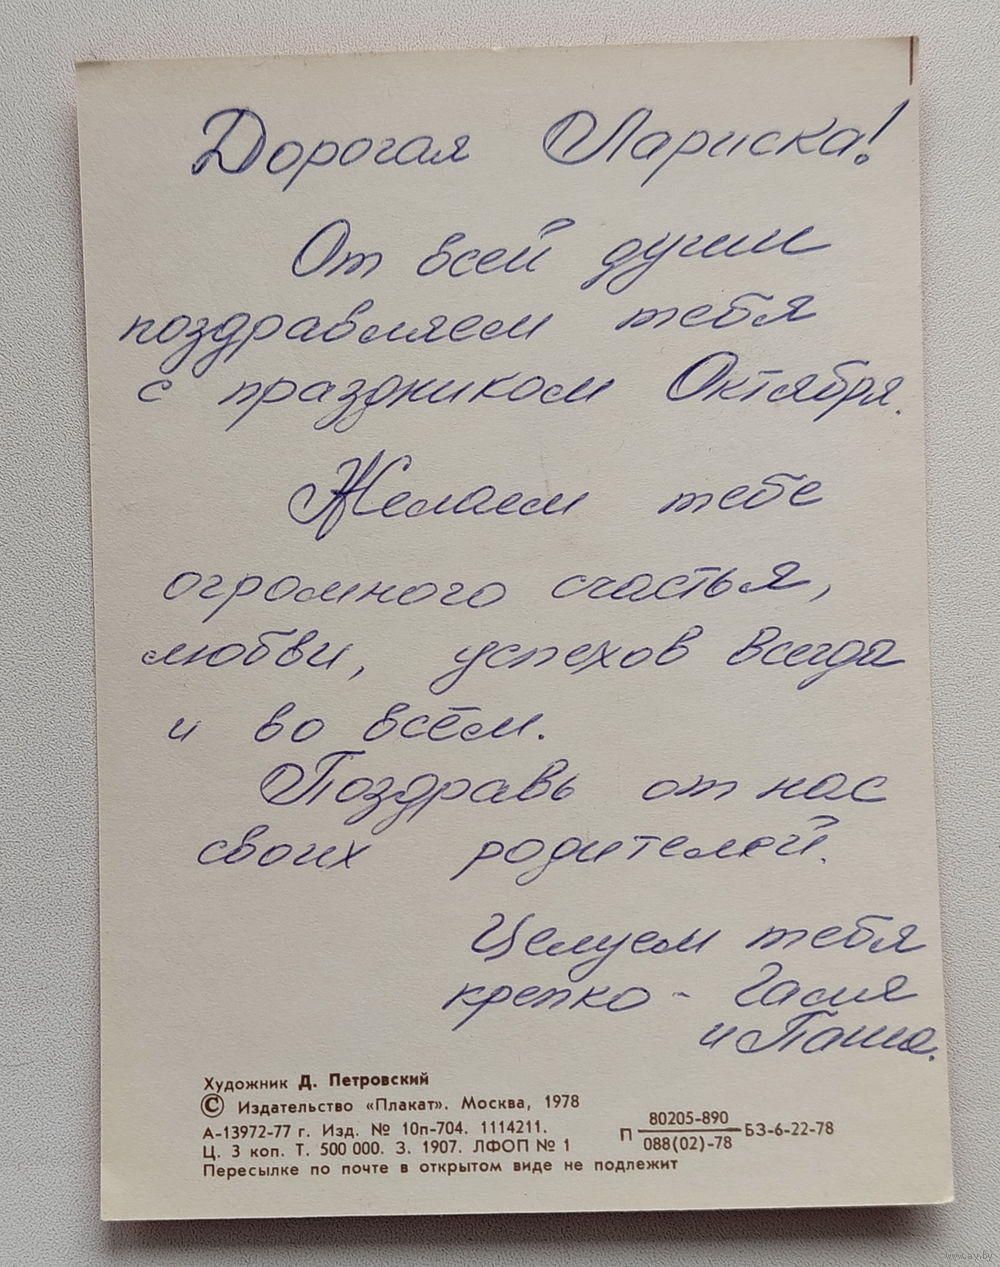 Дорогая Лариска!
От всей души
поздравляем тебя
с праздником Октября.
Желаем тебе
огромного счастья,
любви, успехов всегда
и во всём.
Поздравь от нас
своих родителей.
Целуем тебя
крепко - Галя
и Паша.
Художник Д. Петровский
© Издательство «Плакат». Москва, 1978
А-13972-77 г. Изд. № 10п-704. 1114211.
Ц. 3 коп. Т. 500 000. З. 1907. ЛФОП № 1
Пересылке по почте в открытом виде не подлежит
П 80205-890 БЗ-6-22-78
088(02)-78
www.ay.by